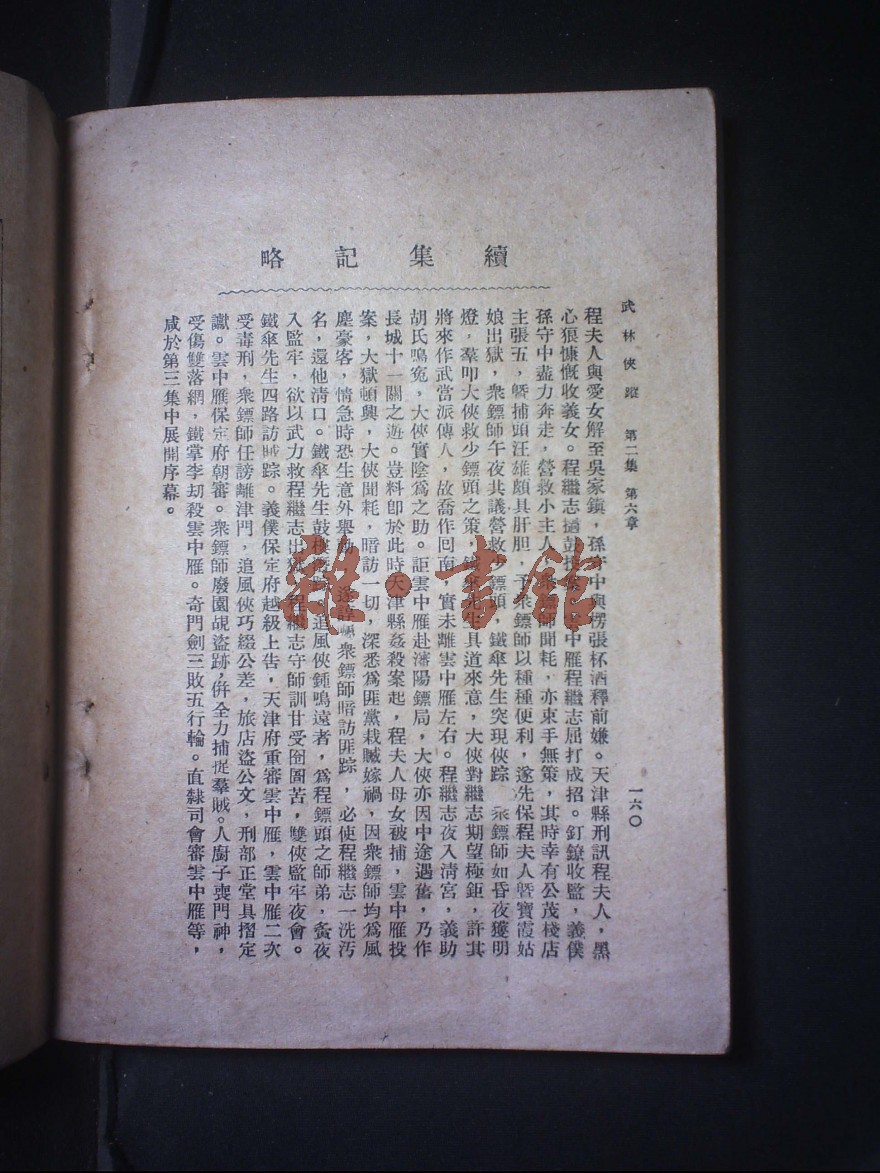 武林俠蹤　第二集　第六章　一六〇
續集記略
程夫人與愛女解至吳家鎮，孫守中與楞張杯酒釋前嫌。天津縣刑訊程夫人，黑
心狼慷慨收義女。程繼志擂鼓投案，雲中雁程繼志屈打成招。釘鐐收監，義僕
孫守中盡力奔走，營救小主人，衆鏢師聞耗，亦束手無策，其時幸有公茂棧店
主張五，曁捕頭汪雄頗具肝胆，予衆鏢師以種種便利，遂先保程夫人曁寶霞姑
娘出獄，衆鏢師午夜共議營救少鏢頭，鐵傘先生突現俠踪，衆鏢師如昏夜獲明
燈，羣叩大俠救少鏢頭之策，鐵傘先生具道來意，大俠對繼志期望極鉅，許其
將來作武當派傳人，故喬作囘南，實未離雲中雁左右。程繼志夜入淸宮，義助
胡氏鳴寃，大俠實陰爲之助。詎雲中雁赴瀋陽鏢局，大俠亦因中途遇舊，乃作
長城十一關之遊。豈料卽於此時天津縣姦殺案起，程夫人母女被捕，雲中雁投
案，大獄頓興，大俠聞耗，暗訪一切，深悉爲匪黨栽贓嫁禍，因衆鏢師均爲風
塵豪客，情急時恐生意外舉動，遂誥衆鏢師暗訪匪踪，必使程繼志一洗汚
名，還他淸口。鐵傘先生鼓樓 踪。追風俠鍾鳴遠者，爲程鏢頭之師弟，夤夜
入監牢，欲以武力救程繼志出獄，程繼志守師訓甘受囹圄苦，雙俠監牢夜會。
鐵傘先生四路訪賊踪。義僕保定府越級上告，天津府重審雲中雁，雲中雁二次
受毒刑，衆鏢師任謗離津門，追風俠巧綴公差，旅店盜公文，刑部正堂具摺定
讞。雲中雁保定府朝審。衆鏢師廢園覘盜跡，倂全力捕捉羣賊。人廚子喪門神，
受傷雙落網，鐵掌李刧殺雲中雁。奇門劍三敗五行輪。直隸司會審雲中雁等，
咸於第三集中展開序幕。
雜·書館